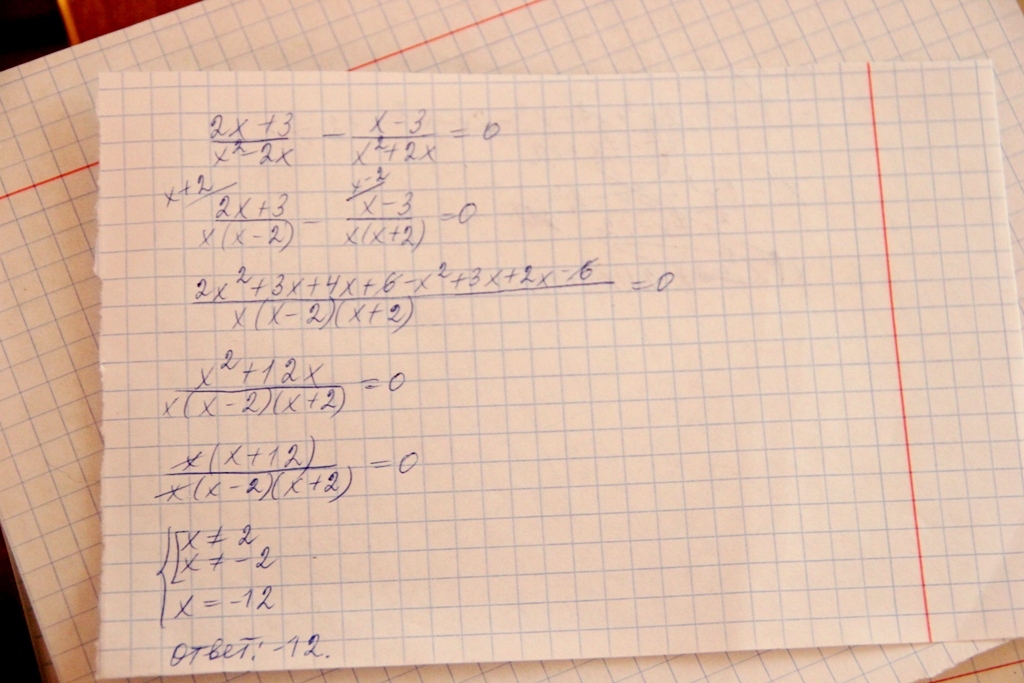 (2x+3)/(x²-2x) - (x-3)/(x²+2x) = 0
x+2/ (2x+3)/(x(x-2)) - x-2/ (x-3)/(x(x+2)) = 0
(2x²+3x+4x+6-x²+3x+2x-6)/(x(x-2)(x+2)) = 0
(x²+12x)/(x(x-2)(x+2)) = 0
x(x+12)/(x(x-2)(x+2)) = 0
{[x ≠ 2
x ≠ -2
x = -12
ответ: -12.